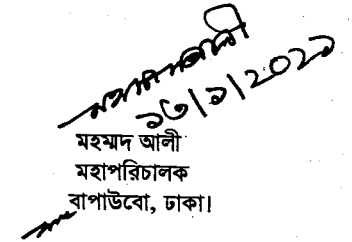 ১৩/১/২০২১
মহম্মদ আলী
মহাপরিচালক
বাপাউবো, ঢাকা।